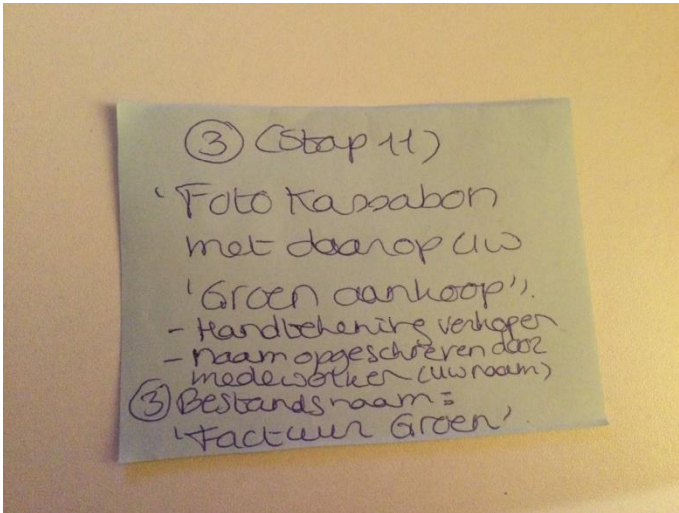 ③ (Stap 11)
'Foto Kassabon
met daarop uw
'Groen aankoop''.
- Handtekening verkoper
- naam opgeschreven door
medewerker (uw naam)
③ Bestandsnaam =
'Factuur Groen'